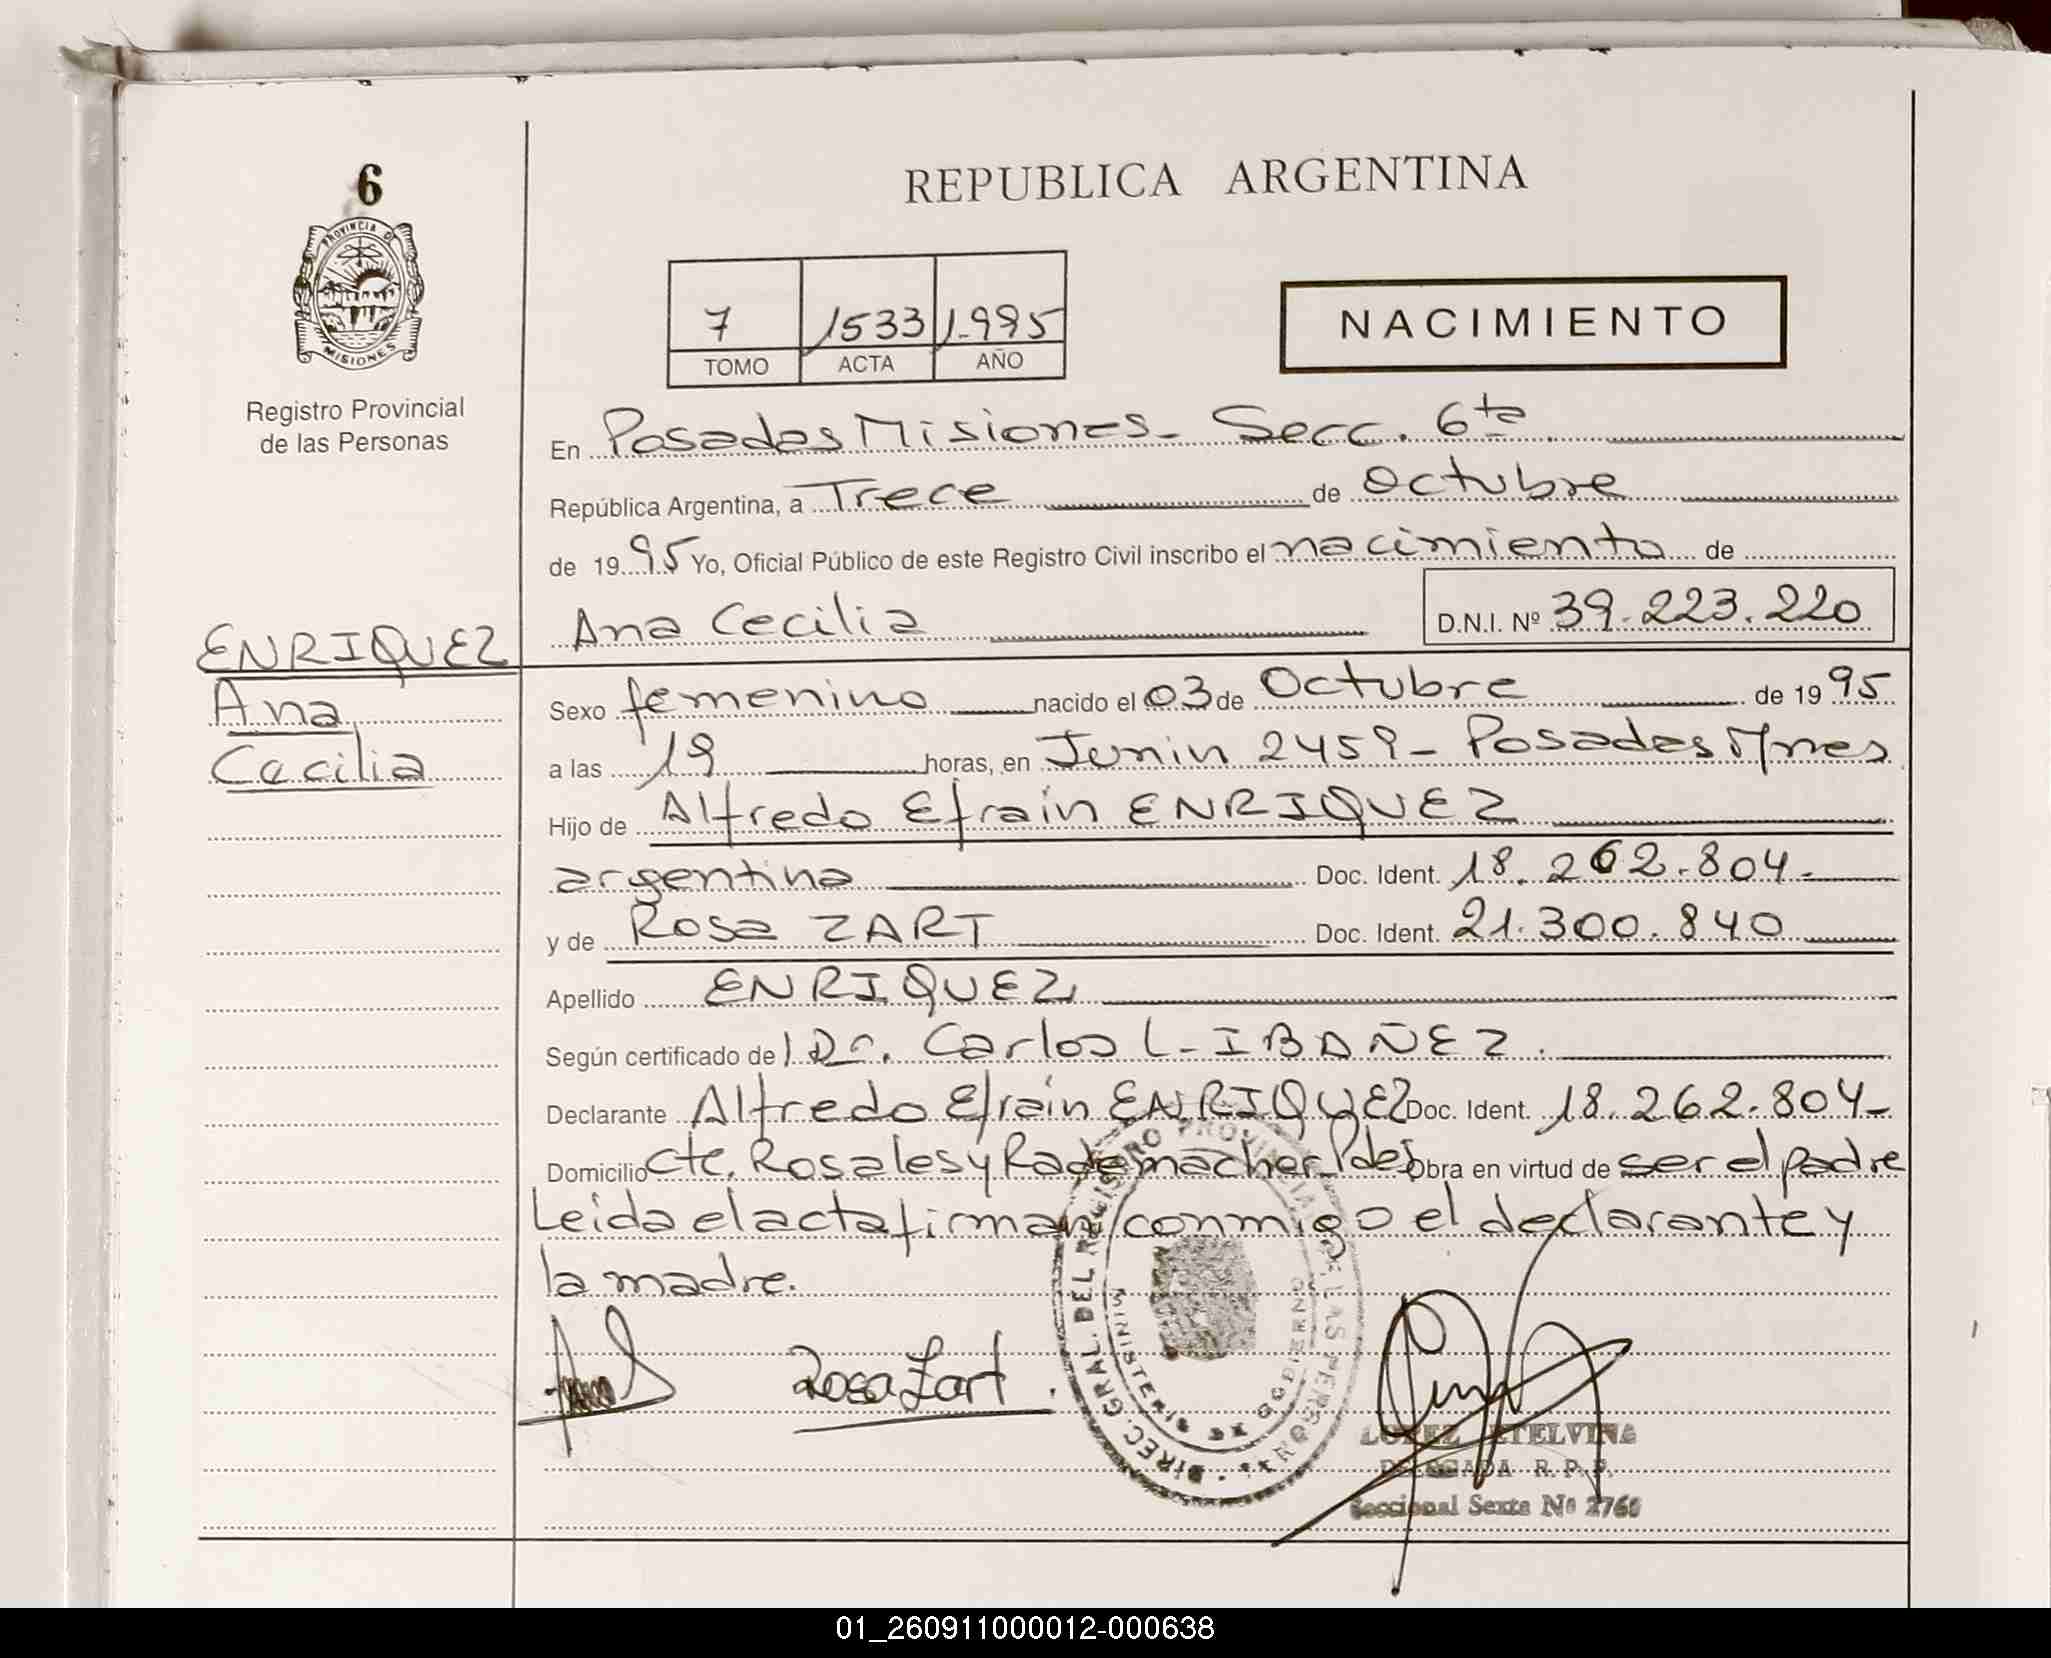 6
PROVINCIA DE
MISIONES
Registro Provincial
de las Personas
REPUBLICA ARGENTINA
7 1533 1.995
TOMO ACTA AÑO
NACIMIENTO
En Posadas Misiones - Secc. 6ta
República Argentina, a Trece de Octubre
de 1995 Yo, Oficial Público de este Registro Civil inscribo el nacimiento de
Ana Cecilia D.N.I. Nº 39.223.220
ENRIQUEZ
Ana
Cecilia
Sexo femenino nacido el 03 de Octubre de 1995
a las 19 horas, en Junin 2459 - Posadas Mnes
Hijo de Alfredo Efraín ENRIQUEZ
argentina Doc. Ident. 18.262.804-
y de Rosa ZART Doc. Ident. 21.300.840
Apellido ENRIQUEZ
Según certificado de Dr. Carlos L. IBAÑEZ.
Declarante Alfredo Efraín ENRIQUEZ Doc. Ident. 18.262.804-
Domicilio Cte. Rosales y Rademacher Pdes Obra en virtud de ser el padre
Leida el acta firman conmigo el declarante y
la madre.
Rosa Zart.
DIREC. GRAL. DEL REGISTRO PROVINCIAL DE LAS PERSONAS
MINISTERIO DE GOBIERNO
LOPEZ ETELVINA
DELEGADA R.P.P.
Seccional Sexta Nº 2760
01_260911000012-000638